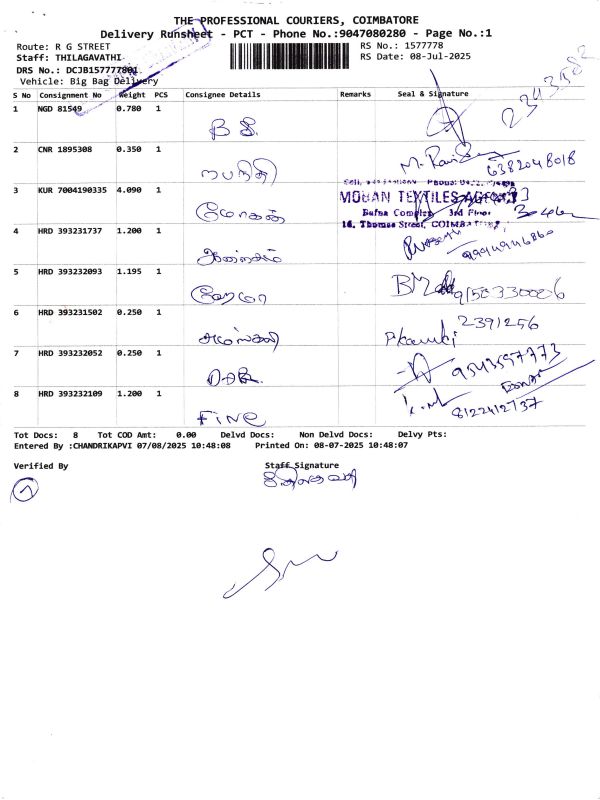 THE PROFESSIONAL COURIERS, COIMBATORE
Delivery Runsheet - PCT - Phone No.:9047080280 - Page No.:1
Route: R G STREET
RS No.: 1577778
Staff: THILAGAVATHI
RS Date: 08-Jul-2025
DRS No.: DCJB157777801
Vehicle: Big Bag Delivery
S No Consignment No Weight PCS Consignee Details Remarks Seal & Signature
2343582
1 NGD 81549 0.780 1
B S.
2 CNR 1895308 0.350 1
நபநிதி
6382048018
3 KUR 7004190335 4.090 1
மோகன்
MOHAN TEXTILES AGENCY
Bafna Complex 3rd Floor
16, Thomas Street, COIMBATORE
4 HRD 393231737 1.200 1
9994946860
5 HRD 393232093 1.195 1
ஹேமா
9158330006
6 HRD 393231502 0.250 1
2391256
7 HRD 393232052 0.250 1
9543597773
8 HRD 393232109 1.200 1
FINE
8122412737
Tot Docs: 8 Tot COD Amt: 0.00 Delvd Docs: Non Delvd Docs: Delvy Pts:
Entered By :CHANDRIKAPVI 07/08/2025 10:48:08 Printed On: 08-07-2025 10:48:07
Verified By Staff Signature